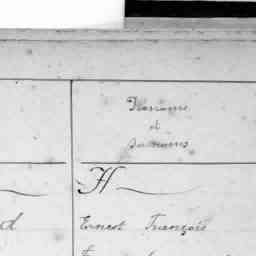 Prénoms
et
Surnoms
H
d
Ernest François